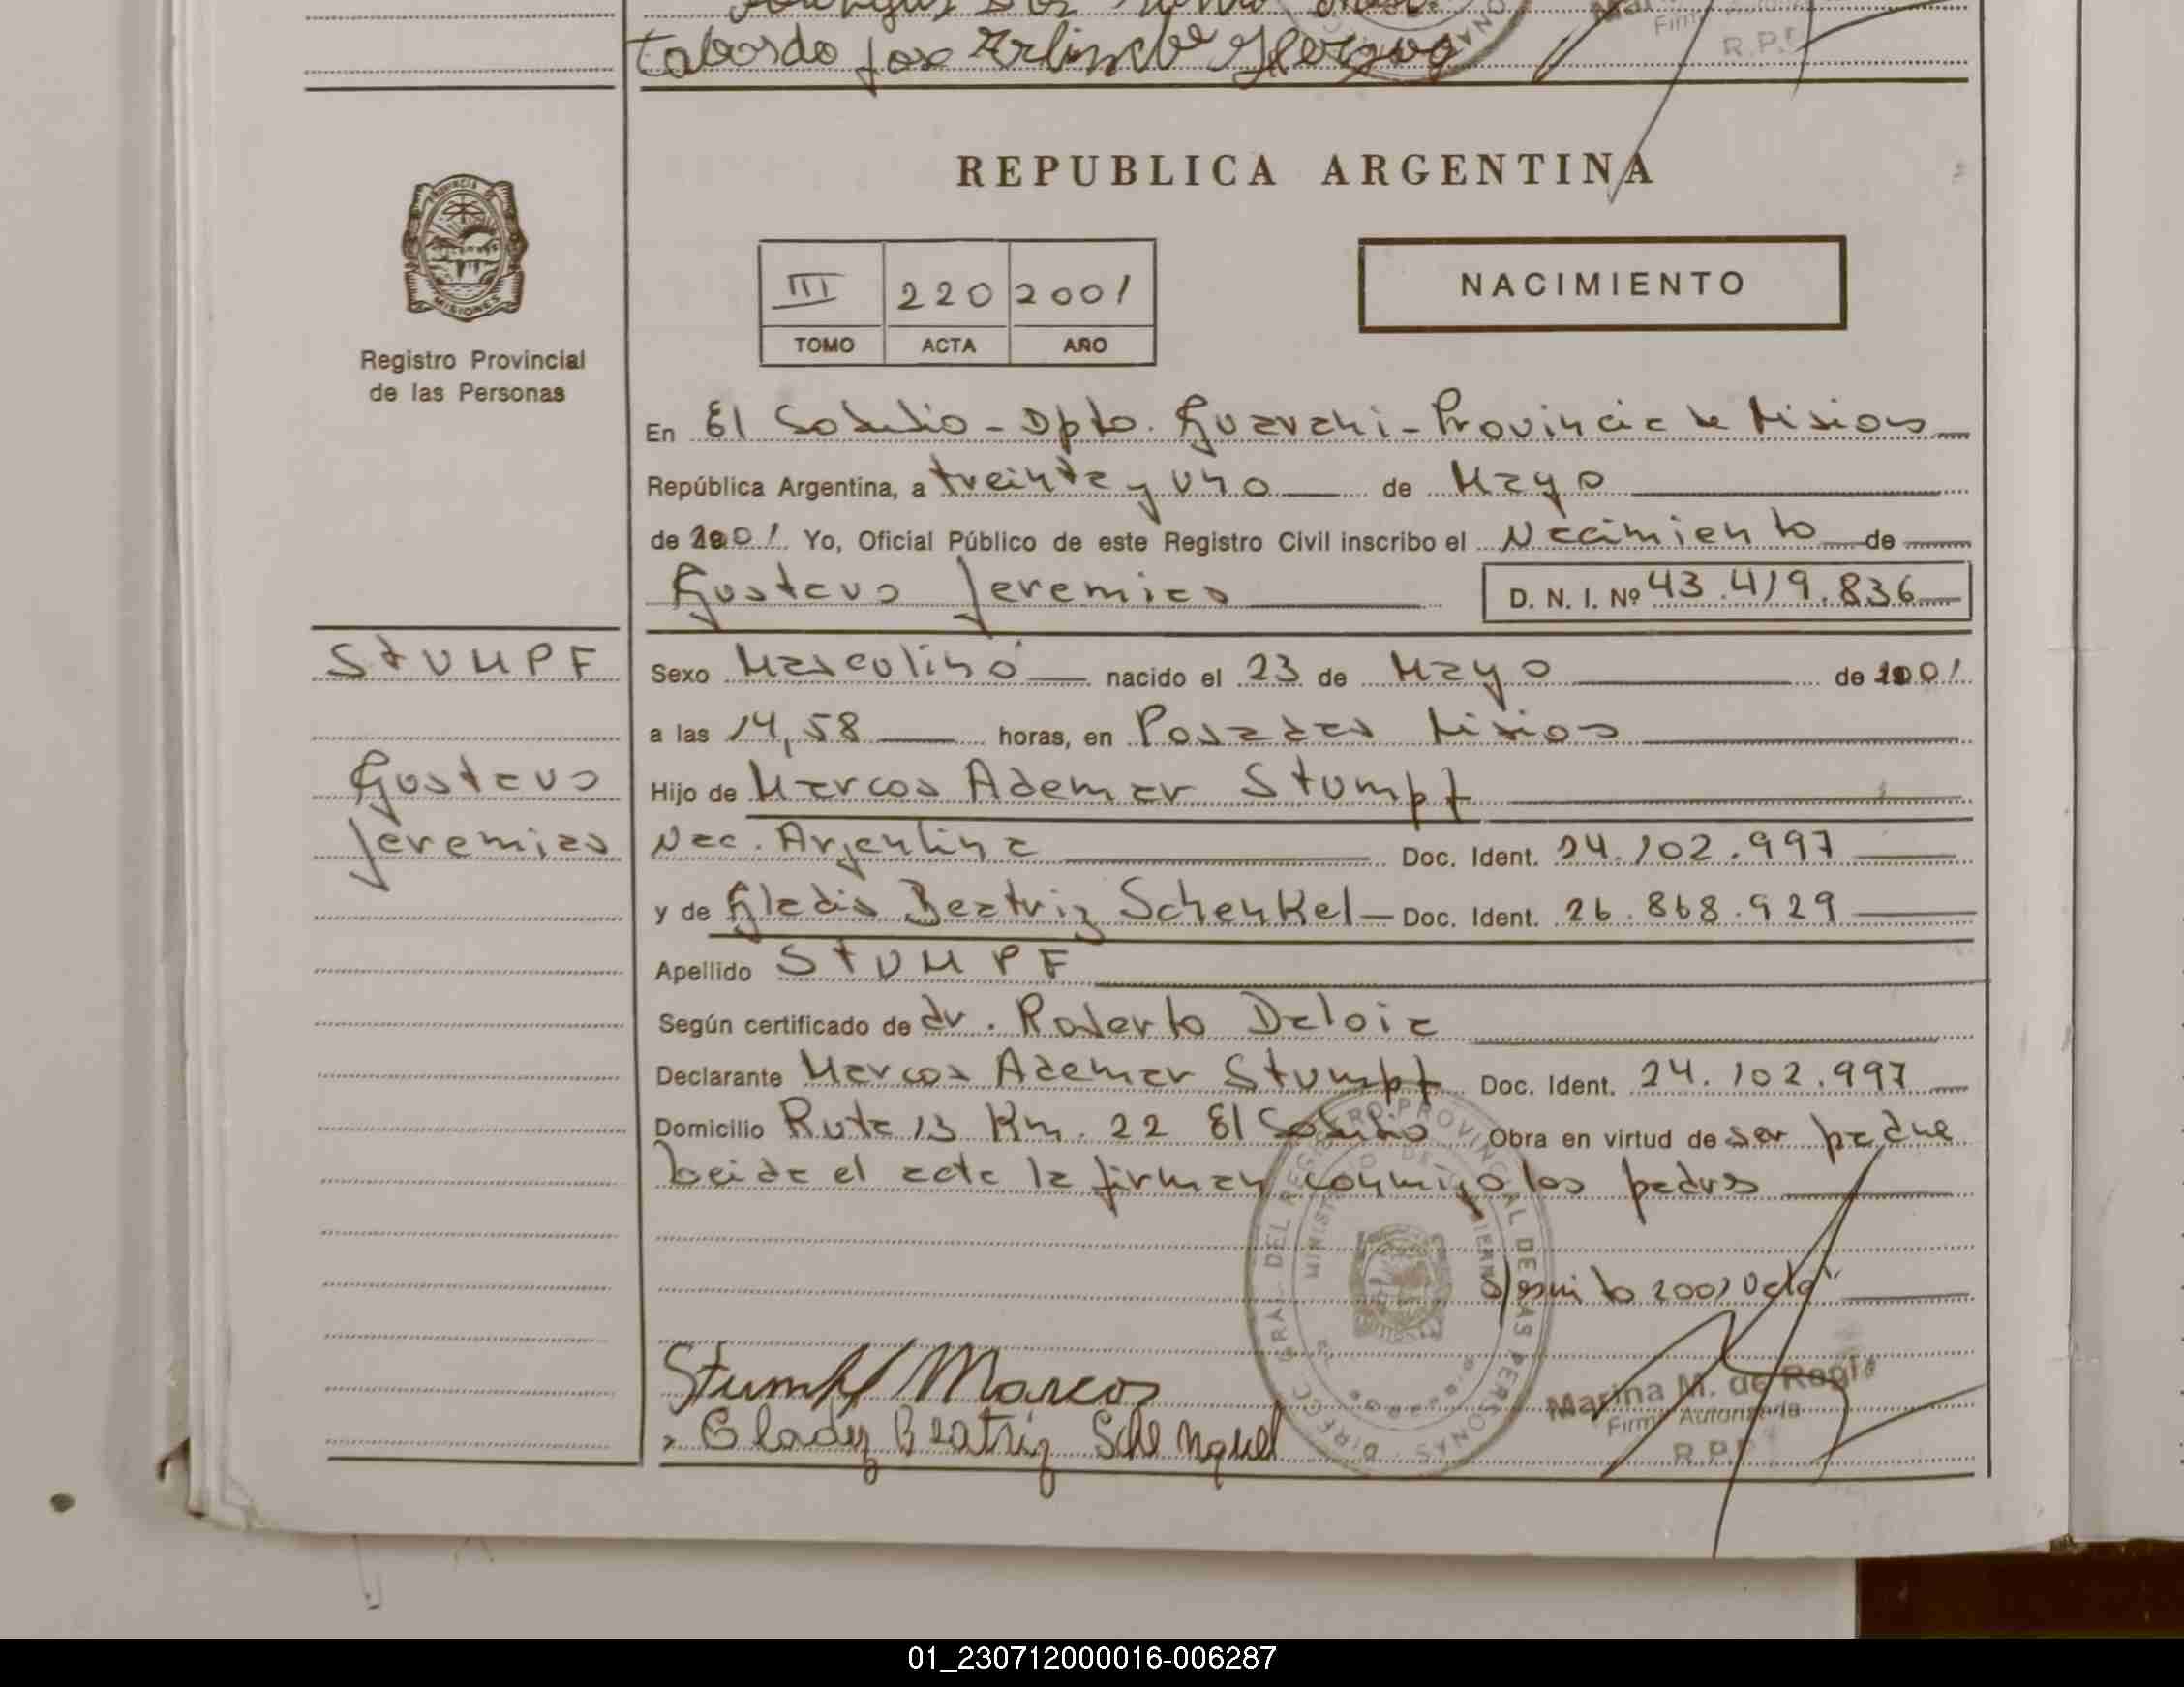 Taborda Jose Arlindo Herzog
REPUBLICA ARGENTINA
PROVINCIA DE MISIONES
Registro Provincial
de las Personas
III 220 2001
TOMO ACTA AÑO
NACIMIENTO
En El Soberbio - Dpto. Guarani - Provincia de Misiones
República Argentina, a treinta y uno de Mayo
de 2001 Yo, Oficial Público de este Registro Civil inscribo el Nacimiento de
Gustavo Jeremias D. N. I. Nº 43.419.836
STUMPF
Gustavo
Jeremias
Sexo Masculino nacido el 23 de Mayo de 2001
a las 14,58 horas, en Posadas Misiones
Hijo de Marcos Ademar Stumpf
Nac. Argentina Doc. Ident. 24.102.997
y de Gladis Beatriz Schenkel Doc. Ident. 26.868.929
Apellido STUMPF
Según certificado de dr. Roberto Daloia
Declarante Marcos Ademar Stumpf Doc. Ident. 24.102.997
Domicilio Ruta 13 Km. 22 El Soberbio Obra en virtud de ser padre
Leida el acta la firman conmigo los padres
2001 Vale
Stumpf Marcos
Glady Beatriz Schenquel
DIRECC. GRAL. DEL REGISTRO PROVINCIAL DE LAS PERSONAS
Marina M. de
Firma Autorizada
R.P.P.
01_230712000016-006287